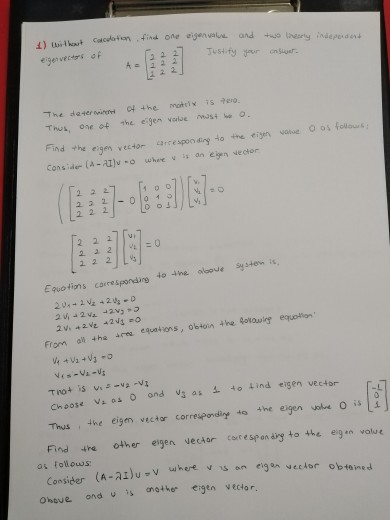 1) Without calculation, find one eigenvalue and two linearly independent
eigenvectors of A = [2 2 2
2 2 2
2 2 2] Justify your answer.
The determinant of the matrix is zero.
Thus, one of the eigen value must be 0.
Find the eigen vector corresponding to the eigen value 0 as follows;
Consider (A-λI)v=0 where v is an eigen vector
([2 2 2
2 2 2
2 2 2] - 0 [1 0 0
0 1 0
0 0 1]) [v1
v2
v3] = 0
[2 2 2
2 2 2
2 2 2] [v1
v2
v3] = 0
Equations corresponding to the above system is,
2v1+2v2+2v3=0
2v1+2v2+2v3=0
2v1+2v2+2v3=0
From all the three equations, obtain the following equation:
v1+v2+v3=0
v1=-v2-v3
That is v1=-v2-v3
Choose v2 as 0 and v3 as 1 to find eigen vector
Thus, the eigen vector corresponding to the eigen value 0 is [-1
0
1]
Find the other eigen vector corresponding to the eigen value
as follows:
Consider (A-λI)u=v where v is an eigen vector obtained
above and u is another eigen vector.